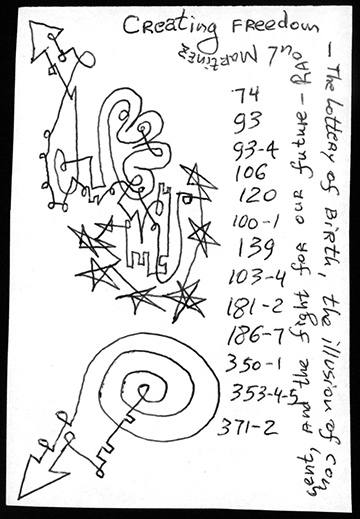 Creating Freedom
– The lottery of Birth, the illusion of con
sent, and the fight for our future – RAO
uL Martinez
74
93
93-4
106
120
100-1
139
103-4
181-2
186-7
350-1
353-4-5
371-2